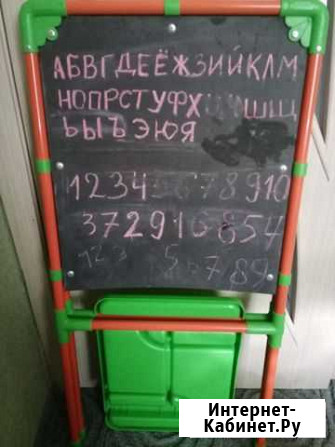 АБВГДЕЁЖЗИЙКЛМ
НОПРСТУФХЦЧШЩ
ЬЫЪЭЮЯ
12345678910
372916854
123 5 789
Интернет-
Кабинет.Ру